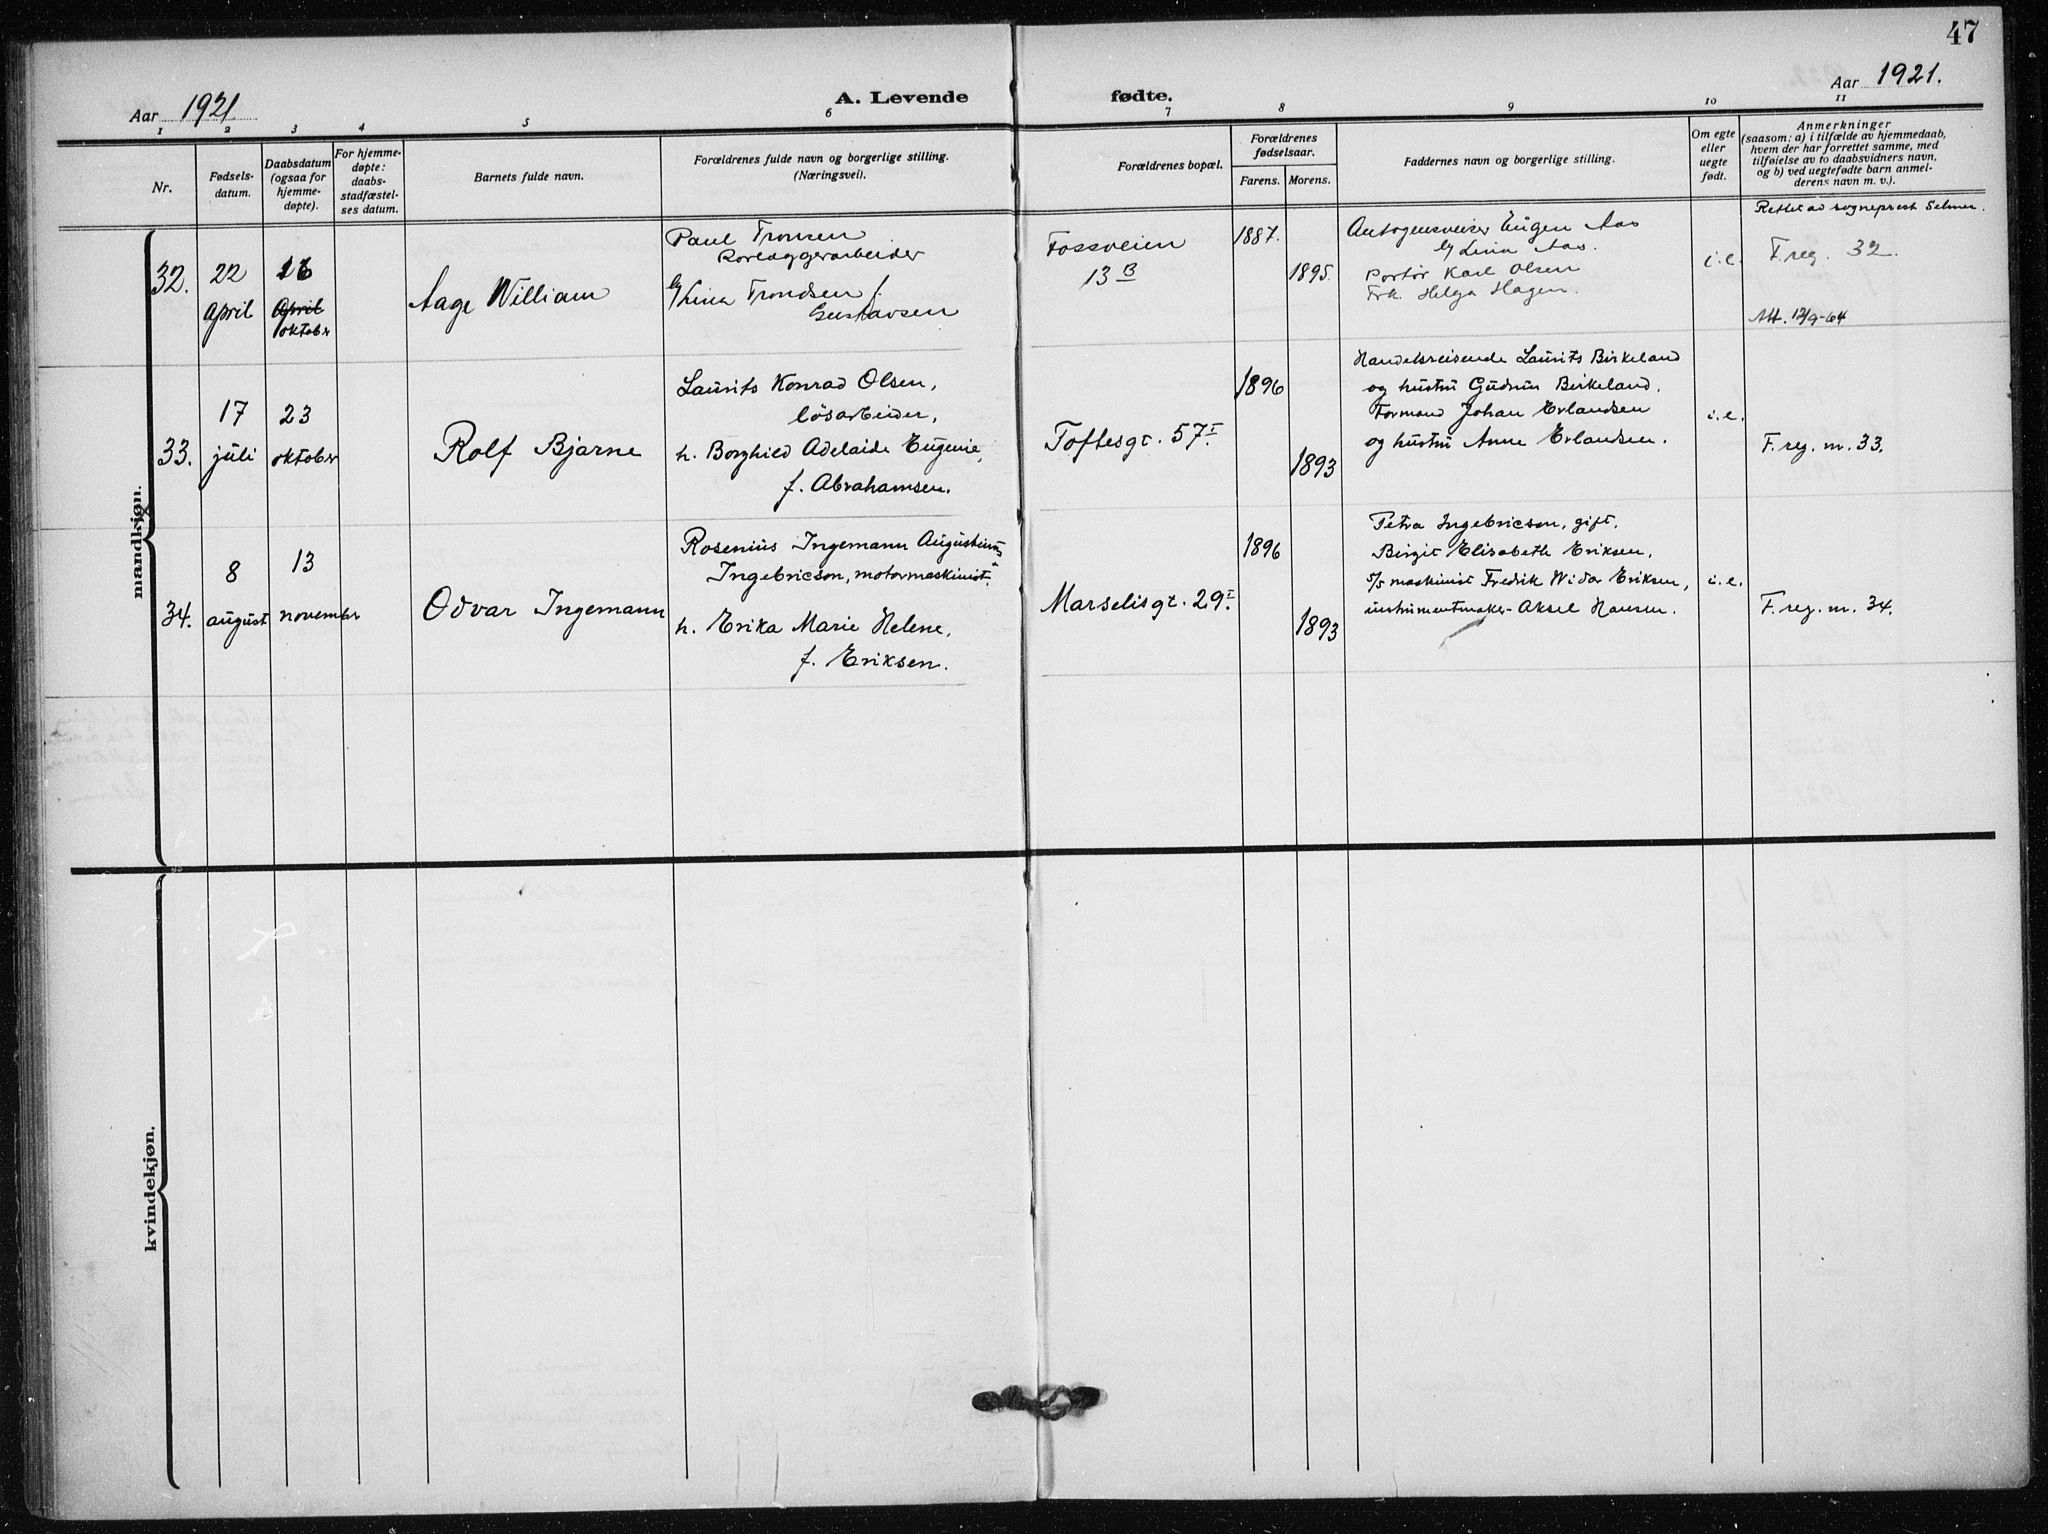 47
Aar 1921.
A. Levende fødte.
Aar 1921.
1 2 3 4 5 6 7 8 9 10 11
Nr.
Fødsels-
datum.
Daabsdatum
(ogsaa for
hjemme-
døpte).
For hjemme-
døpte:
daabs-
stadfæstel-
ses datum.
Barnets fulde navn.
Forældrenes fulde navn og borgerlige stilling.
(Næringsvei).
Forældrenes bopæl.
Forældrenes
fødselsaar.
Farens. Morens.
Faddernes navn og borgerlige stilling.
Om egte
eller
uegte
født.
Anmerkninger
(saasom: a) i tilfælde av hjemmedaab,
hvem der har forrettet samme, med
tilføielse av to daabsvidners navn,
og b) ved uegtefødte barn anmel-
derens navn m. v.).
mandkjøn.
32.
22
april
16
April
oktober
Aage William
Paul Tronsen
Rørlæggerarbeider
og Lina Trondsen f.
Gustavsen
Fossveien
13 B
1887.
1895.
Autogensveiser Eugen Aas
og Lina Aas.
Portør Karl Olsen
Frk. Helga Hagen.
i.e.
Rettet av sogneprest Selmer.
F. reg. 32.
Att. 12/9-64
33.
17
juli
23
oktober
Rolf Bjarne
Laurits Konrad Olsen,
løsarbeider,
h. Borghild Adelaide Eugenie,
f. Abrahamsen.
Toftesgt. 57 I.
1896
1893
Handelsreisende Laurits Birkeland
og hustru Gudrun Birkeland.
Formand Johan Erlandsen
og hustru Anne Erlandsen.
i.e.
F. reg. nr. 33.
34.
8
august
13
november
Odvar Ingemann
Rosenius Ingemann Augustinus
Ingebricson, motormaskinist.
h. Erika Marie Helene,
f. Eriksen.
Marselisgt. 29 I.
1896
1893
Petra Ingebricson, gift.
Birgit Elisabeth Eriksen,
s/s maskinist Fredrik Widar Eriksen,
instrumentmaker Aksel Hansen.
i.e.
F. reg. nr. 34.
kvindekjøn.